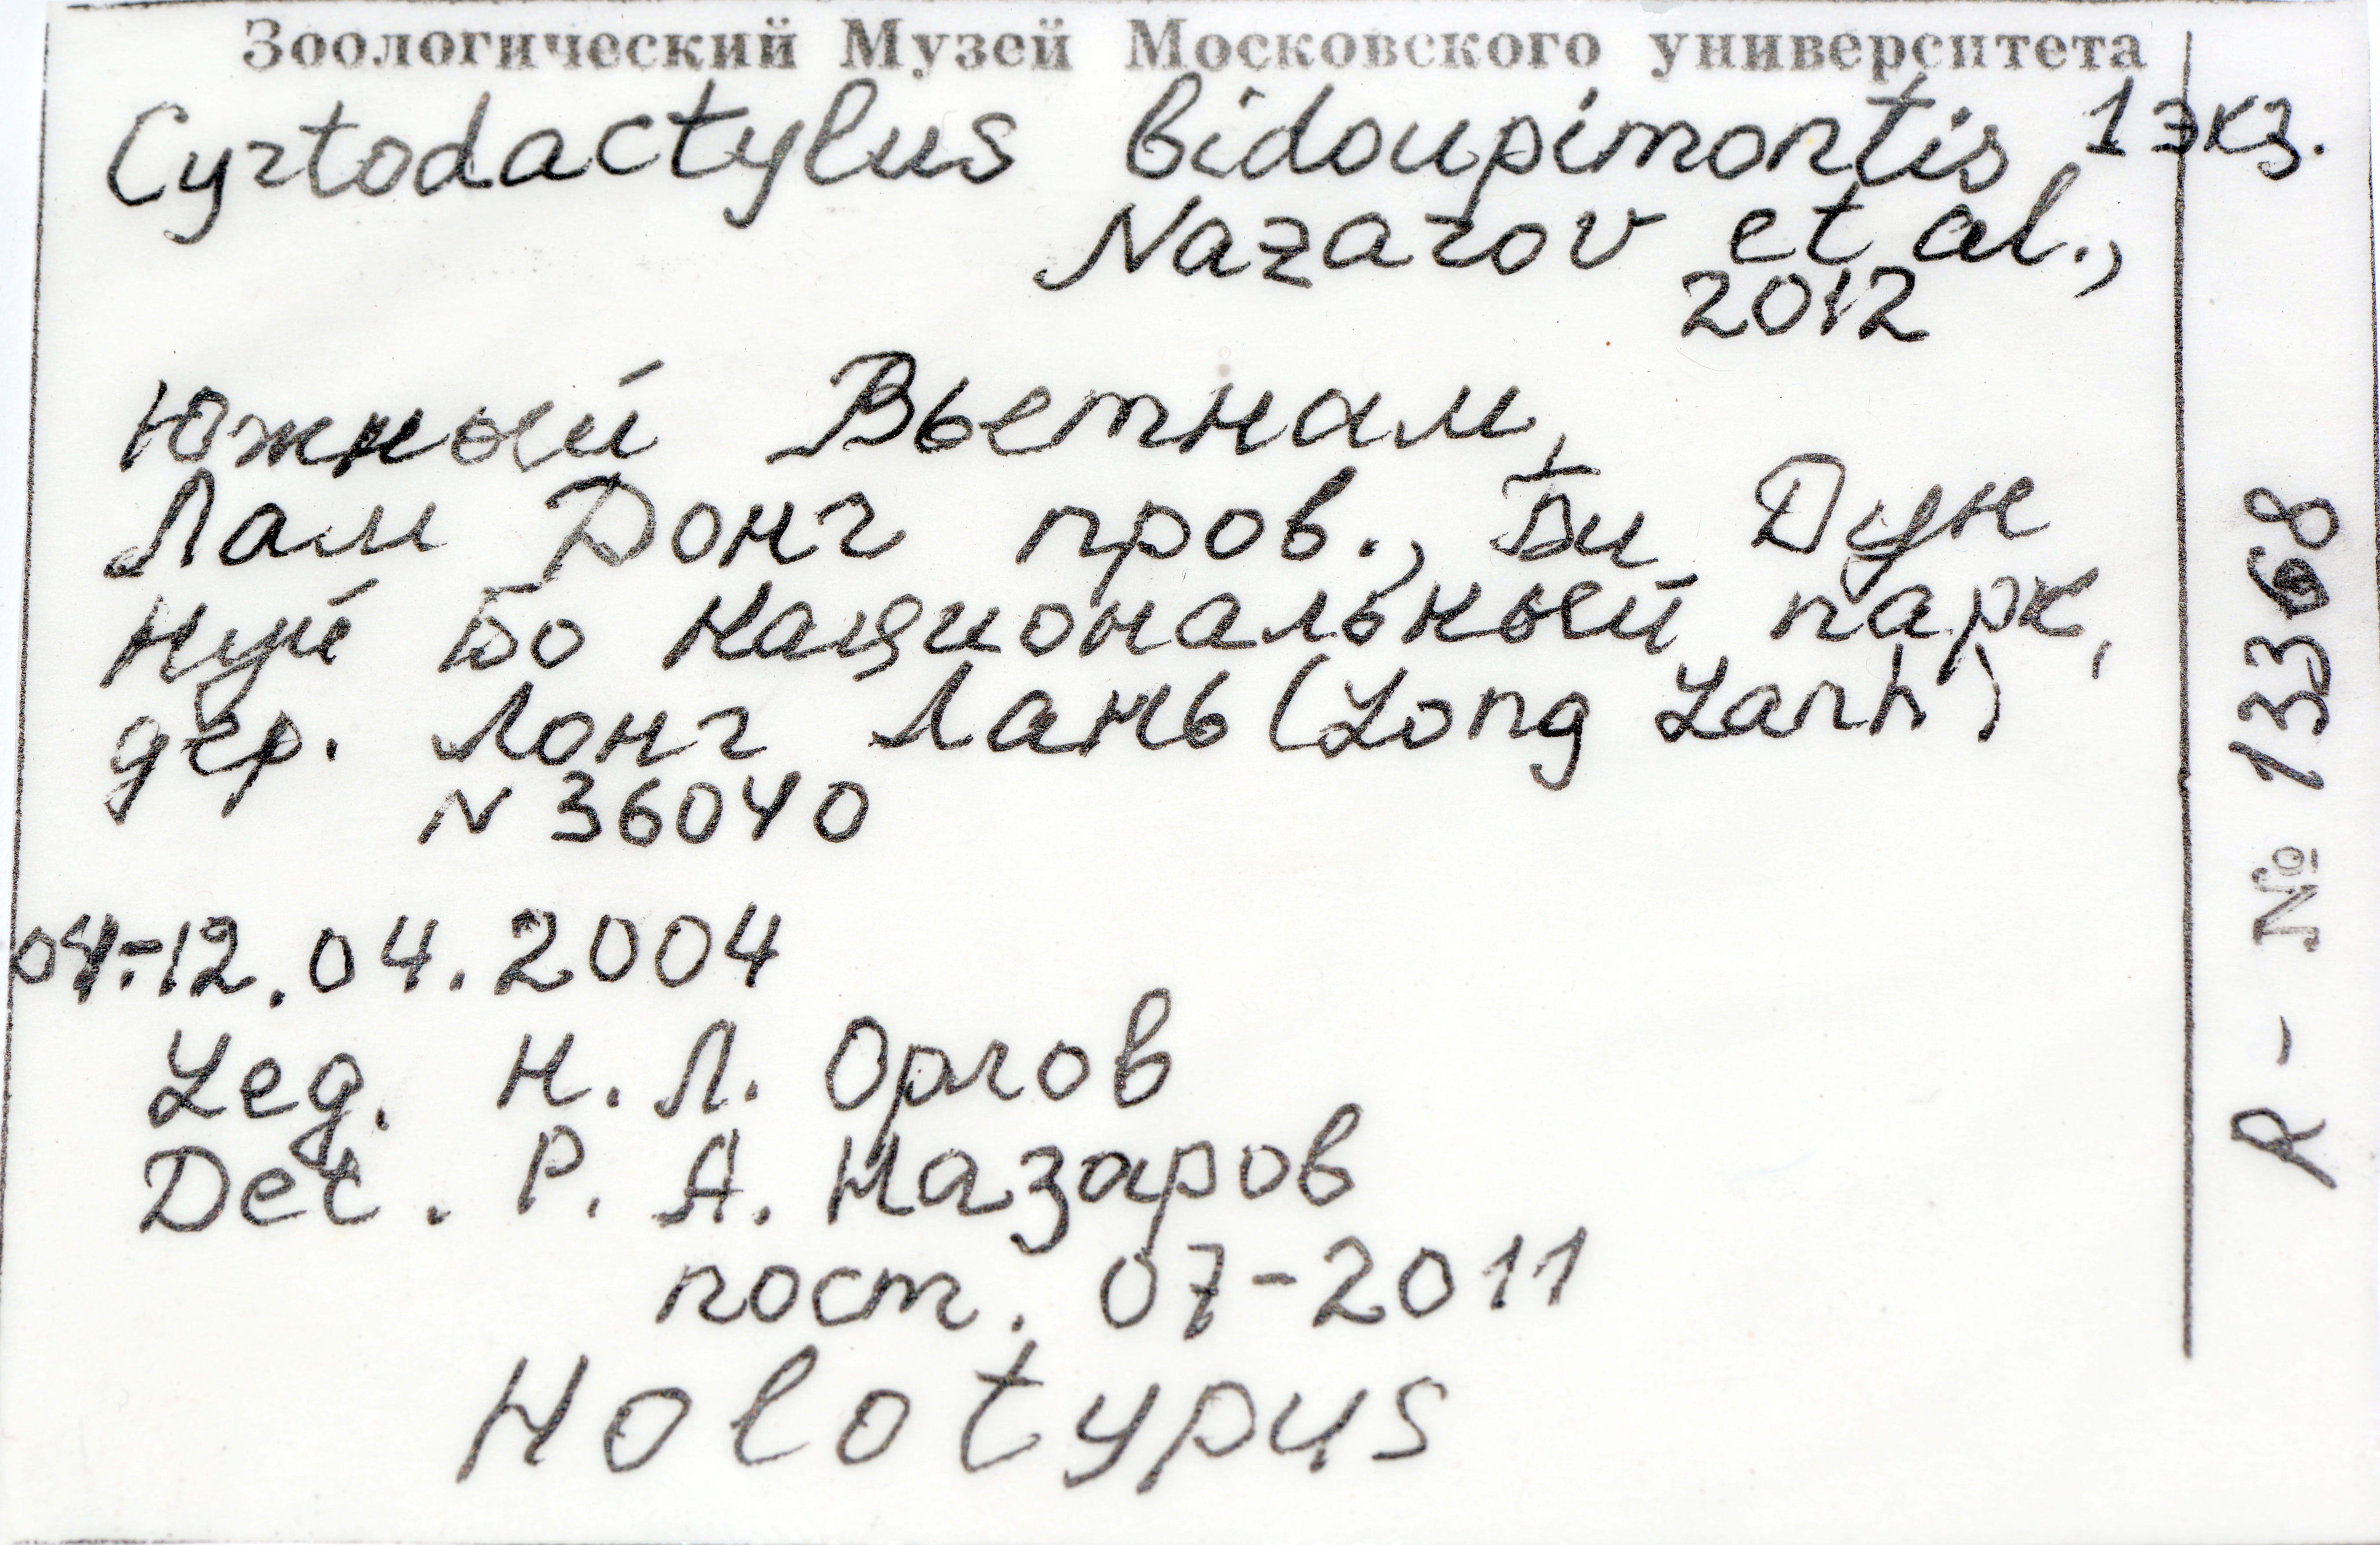 Зоологический Музей Московского университета
Cyrtodactylus bidoupimontis 1 экз.
Nazarov et al.,
2012
Южный Вьетнам,
Лам Донг пров., Би Дун
Нуй Бо национальный парк,
дер. Лонг Лань (Long Lanh)
N 36040
04-12.04.2004
Leg. Н. Л. Орлов
Det. Р. А. Назаров
пост. 07-2011
Holotypus
R - № 13368